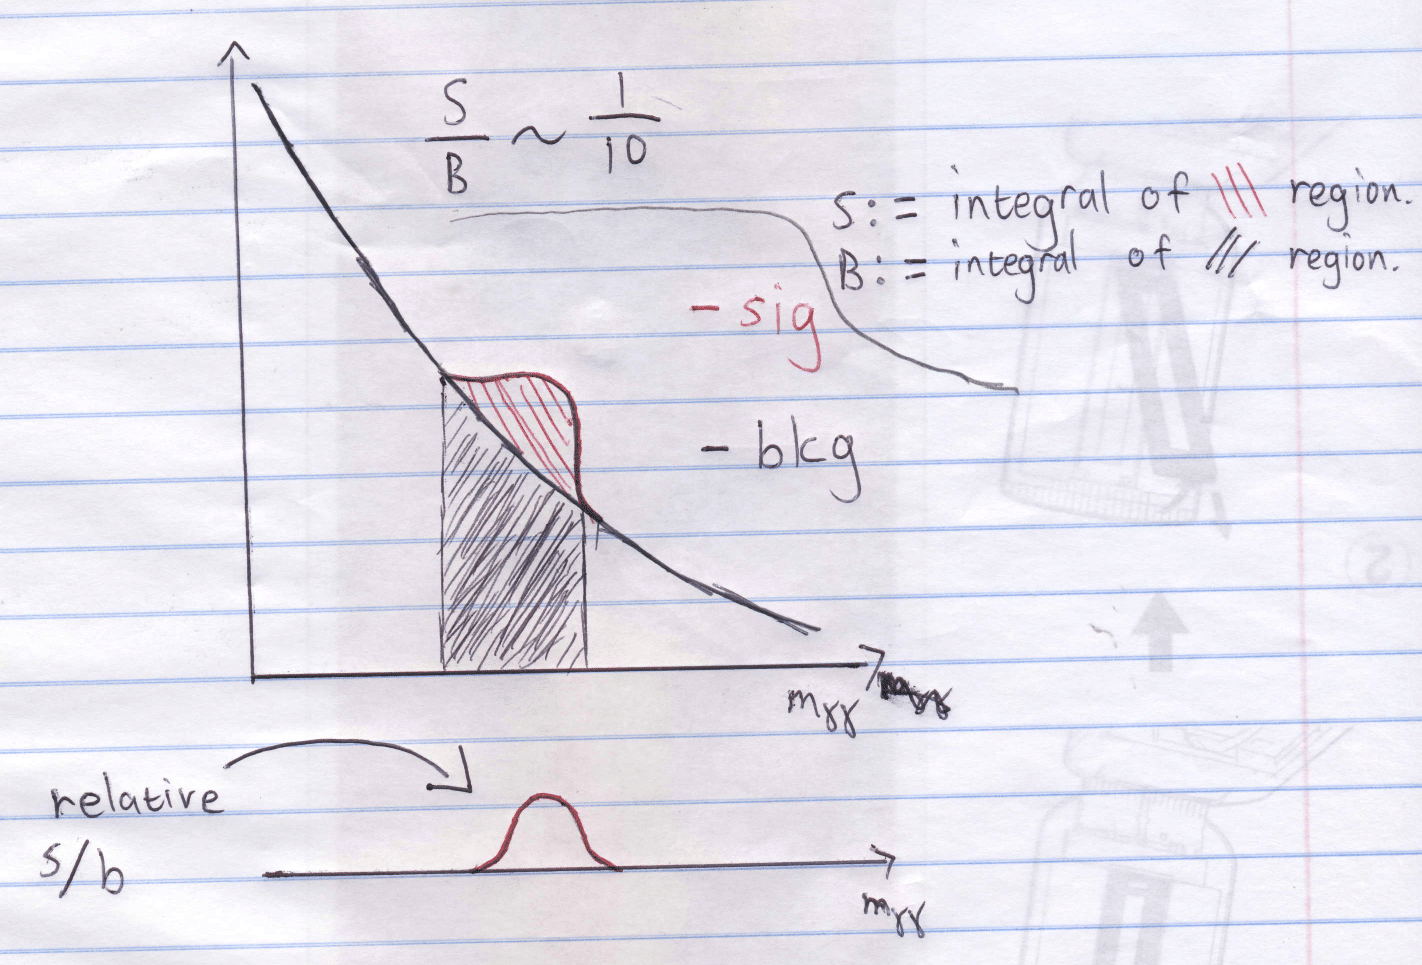 S/B ~ 1/10
S := integral of \\\ region.
B := integral of /// region.
- sig
- bkg
mγγ
relative
s/b
mγγ